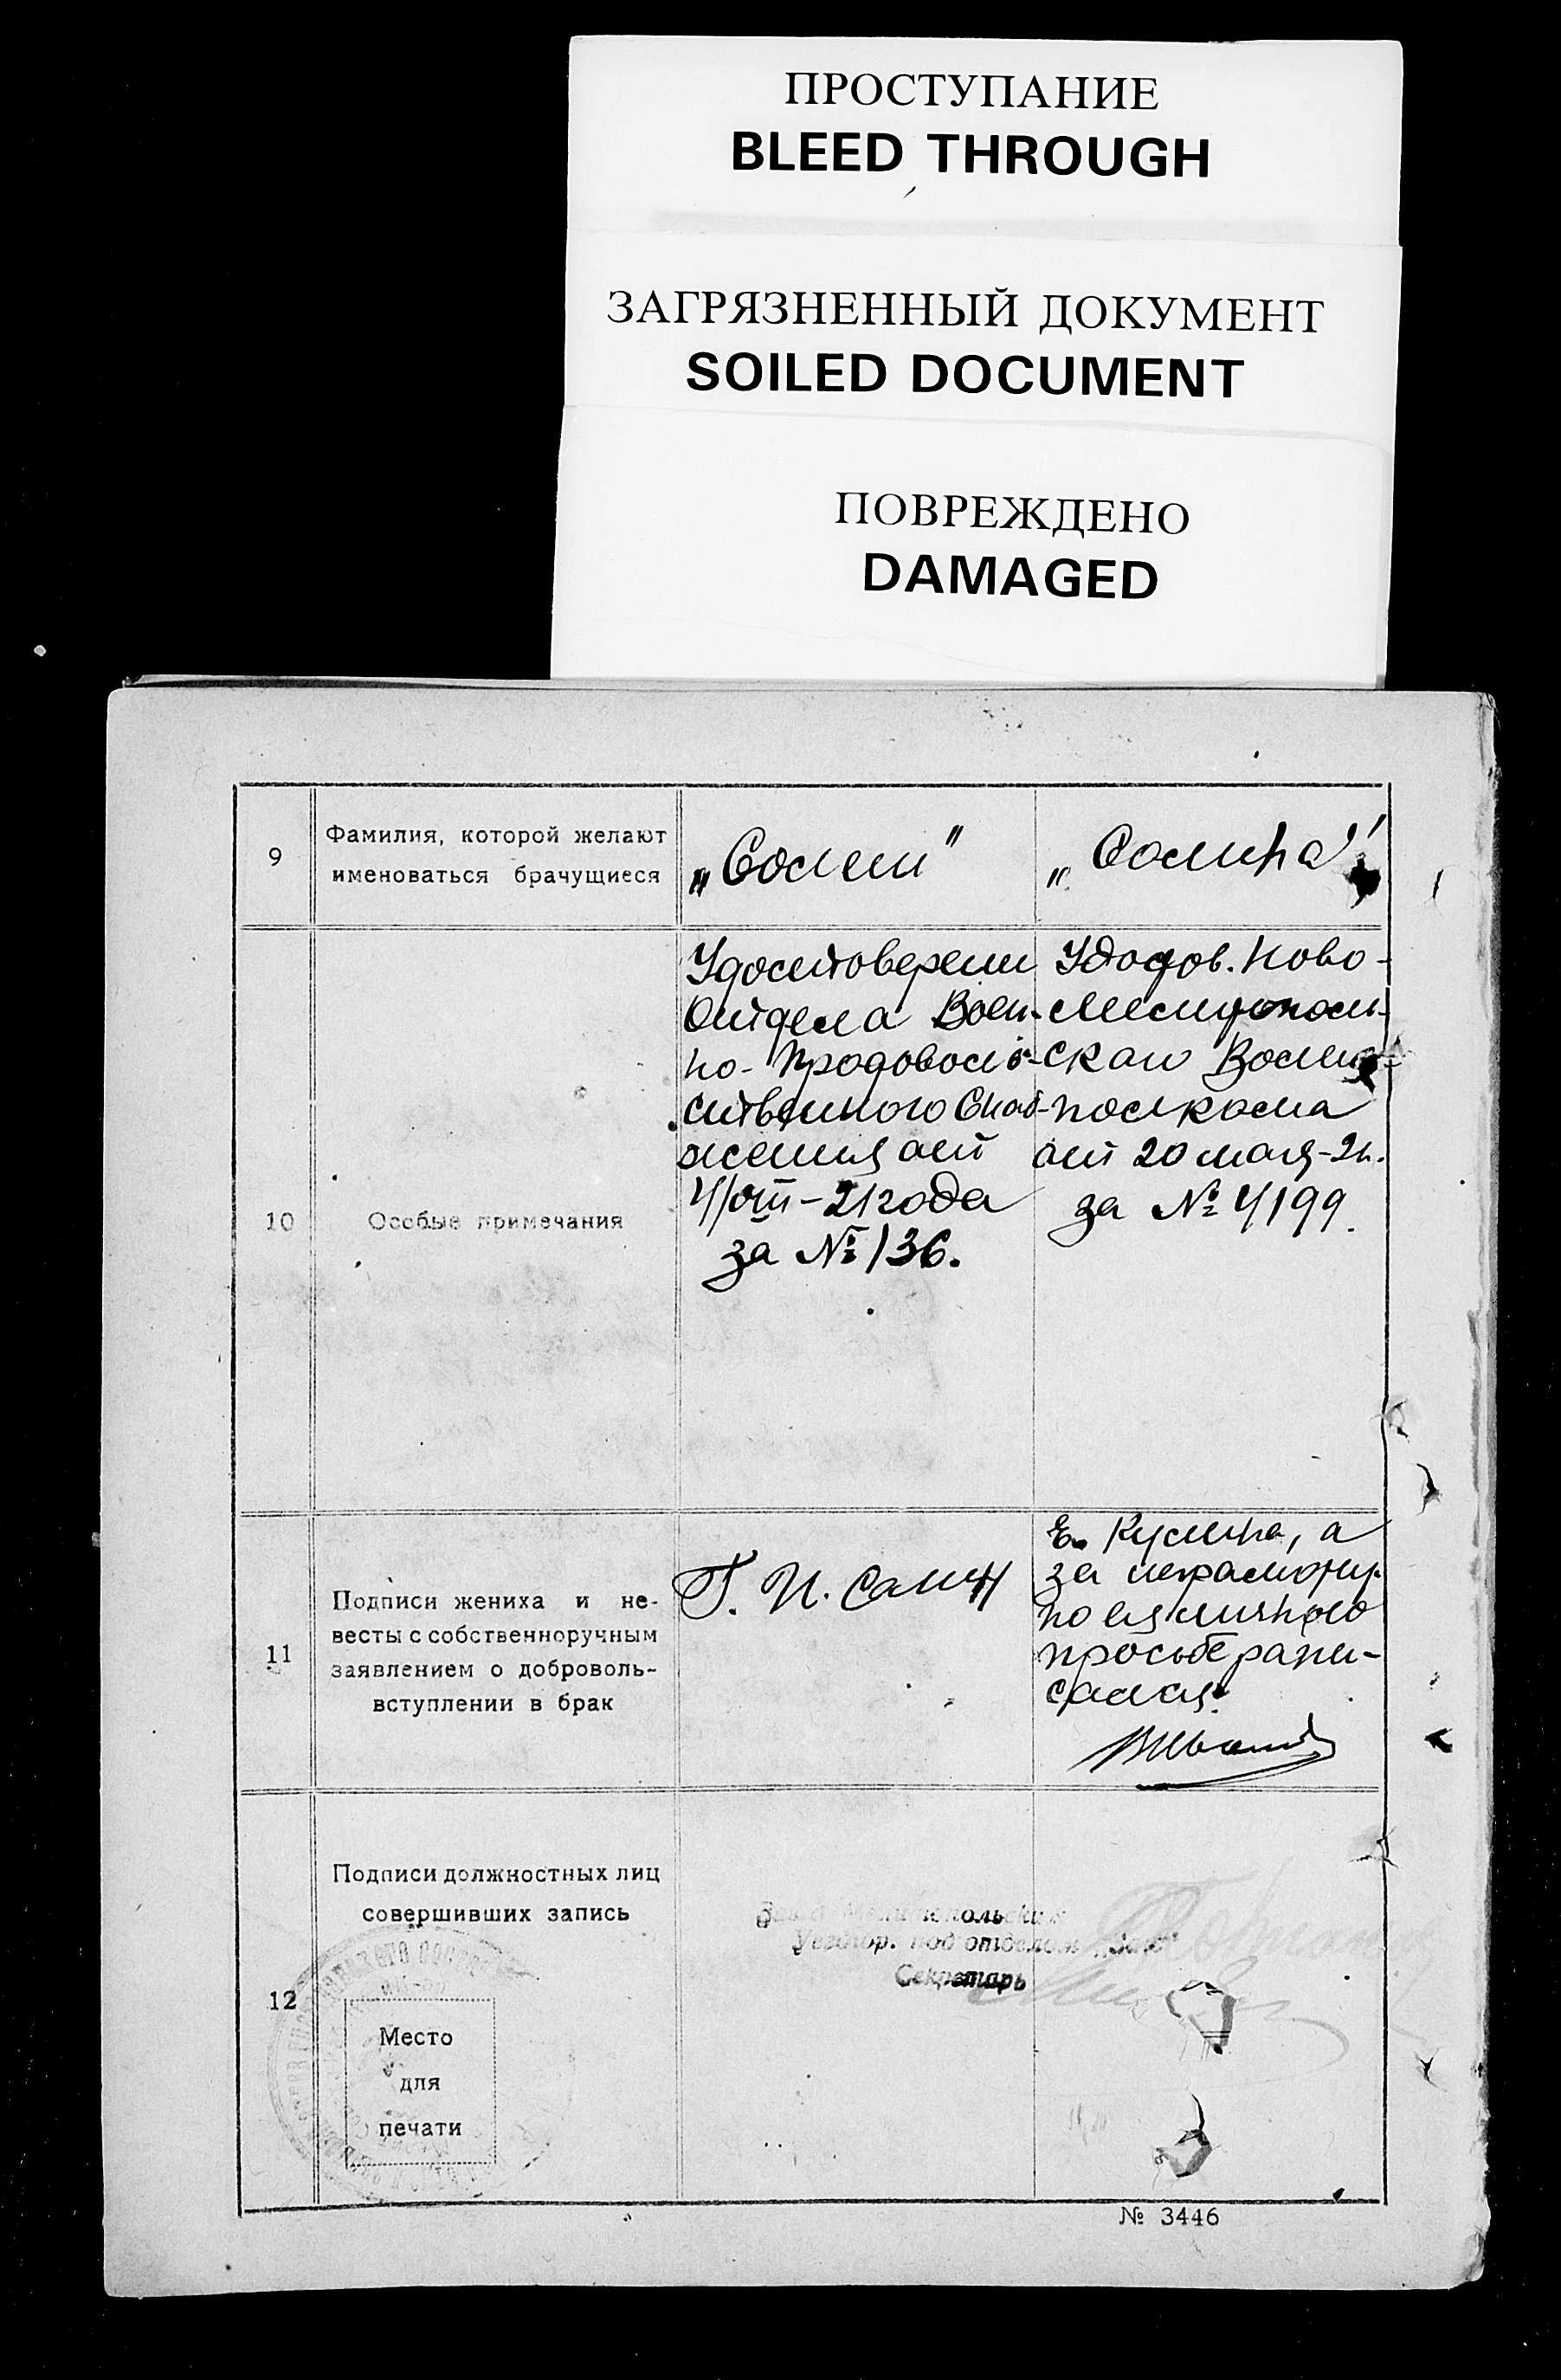 ПРОСТУПАНИЕ
BLEED THROUGH
ЗАГРЯЗНЕННЫЙ ДОКУМЕНТ
SOILED DOCUMENT
ПОВРЕЖДЕНО
DAMAGED
9
Фамилия, которой желают
именоваться брачущиеся
„Солин"
„Солина"
10
Особые примечания
Удостоверени
Отдела Воен-
но-Продоволь-
ственного Снаб-
жения от
4/VIII-21 года
за № 136.
Удостов. Ново-
ского Волис-
полкома
от 20 мая-21.
за № 4199.
11
Подписи жениха и не-
весты с собственноручным
заявлением о доброволь-
вступлении в брак
Г. И. Салин
Е. Кусина, а
за неграмотн.
по ея личной
просьбе распи-
сался
12
Подписи должностных лиц
совершивших запись
Место
для
печати
Секретарь
№ 3446